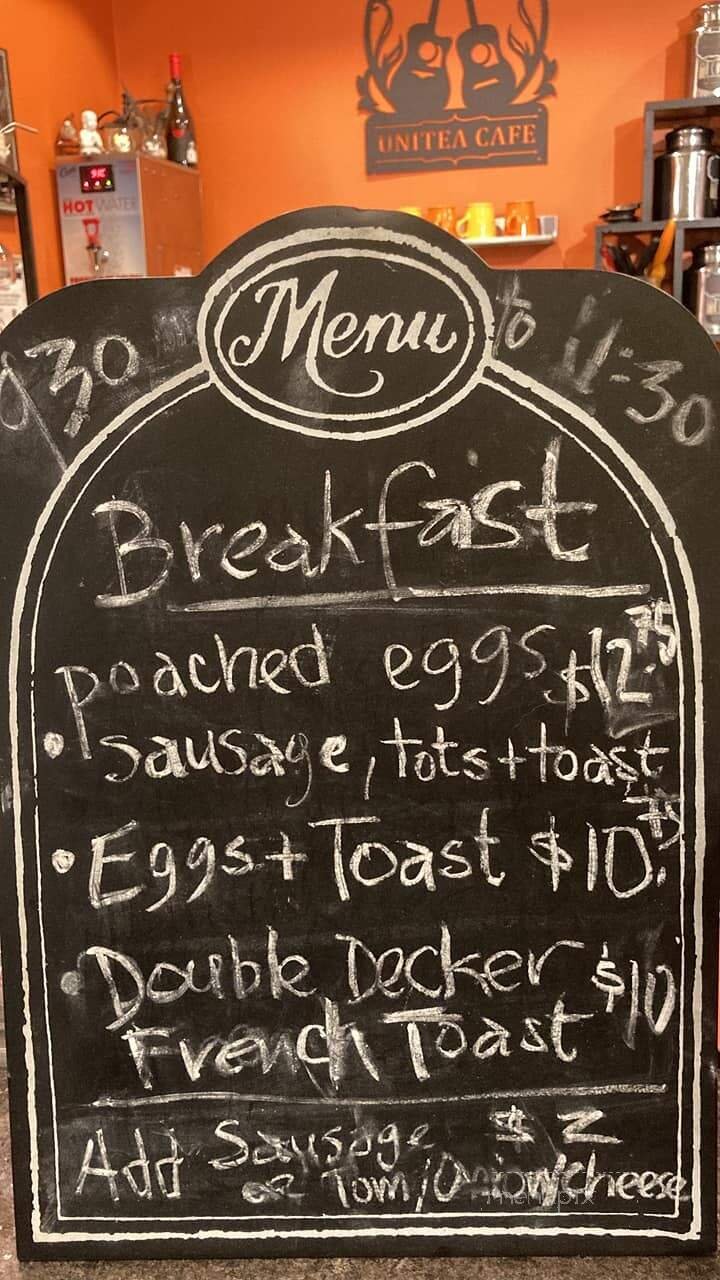 UNITEA CAFE
HOT WATER
Menu
930 to 11:30
Breakfast
poached eggs $12.75
• sausage, tots + toast
• Eggs + Toast $10.75
• Double Decker $10
French Toast
Add Sausage $2
or Tom/Onion/Cheese
menupix